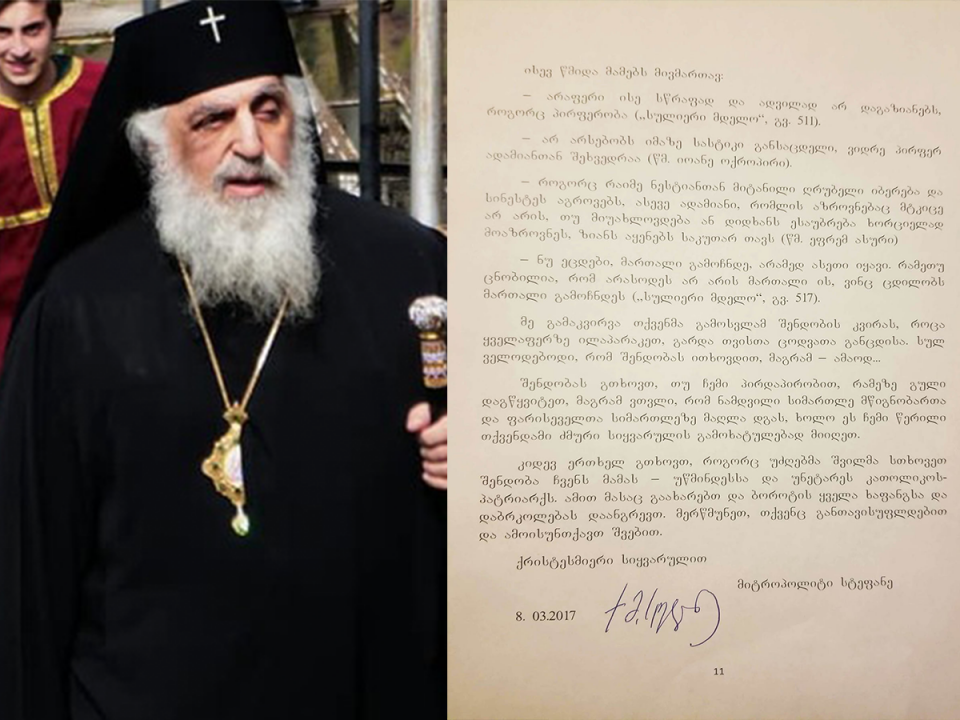 ისევ წმიდა მამებს მივმართავ:
– არაფერი ისე სწრაფად და ადვილად არ დაგაზიანებს,
როგორც პირფერობა („სულიერი მდელო“, გვ. 511).
– არ არსებობს იმაზე სასტიკი განსაცდელი, ვიდრე პირფერ
ადამიანთან შეხვედრაა (წმ. იოანე ოქროპირი).
– როგორც რაიმე ნესტიანთან მიტანილი ღრუბელი იბერება და
სინესტეს აგროვებს, ასევე ადამიანი, რომლის აზროვნებაც მტკიცე
არ არის, თუ მიუახლოვდება ან დიდხანს ესაუბრება ხორციელად
მოაზროვნეს, ზიანს აყენებს საკუთარ თავს (წმ. ეფრემ ასური)
– ნუ ეცდები, მართალი გამოჩნდე, არამედ ასეთი იყავი. რამეთუ
ცნობილია, რომ არასოდეს არ არის მართალი ის, ვინც ცდილობს
მართალი გამოჩნდეს („სულიერი მდელო“, გვ. 517).
მე გამაკვირვა თქვენმა გამოსვლამ შენდობის კვირას, როცა
ყველაფერზე ილაპარაკეთ, გარდა თვისთა ცოდვათა განცდისა. სულ
ველოდებოდი, რომ შენდობას ითხოვდით, მაგრამ – ამაოდ...
შენდობას გთხოვთ, თუ ჩემი პირდაპირობით, რამეზე გული
დაგწყვიტეთ, მაგრამ ვთვლი, რომ ნამდვილი სიმართლე მწიგნობართა
და ფარისეველთა სიმართლეზე მაღლა დგას, ხოლო ეს ჩემი წერილი
თქვენდამი ძმური სიყვარულის გამოხატულებად მიიღეთ.
კიდევ ერთხელ გთხოვთ, როგორც უძღებმა შვილმა სთხოვეთ
შენდობა ჩვენს მამას – უწმინდესსა და უნეტარეს კათოლიკოს-
პატრიარქს. ამით მასაც გაახარებთ და ბოროტის ყველა ხაფანგსა და
დაბრკოლებას დაანგრევთ. მერწმუნეთ, თქვენც განთავისუფლდებით
და ამოისუნთქავთ შვებით.
ქრისტესმიერი სიყვარულით
მიტროპოლიტი სტეფანე
8. 03.2017
11